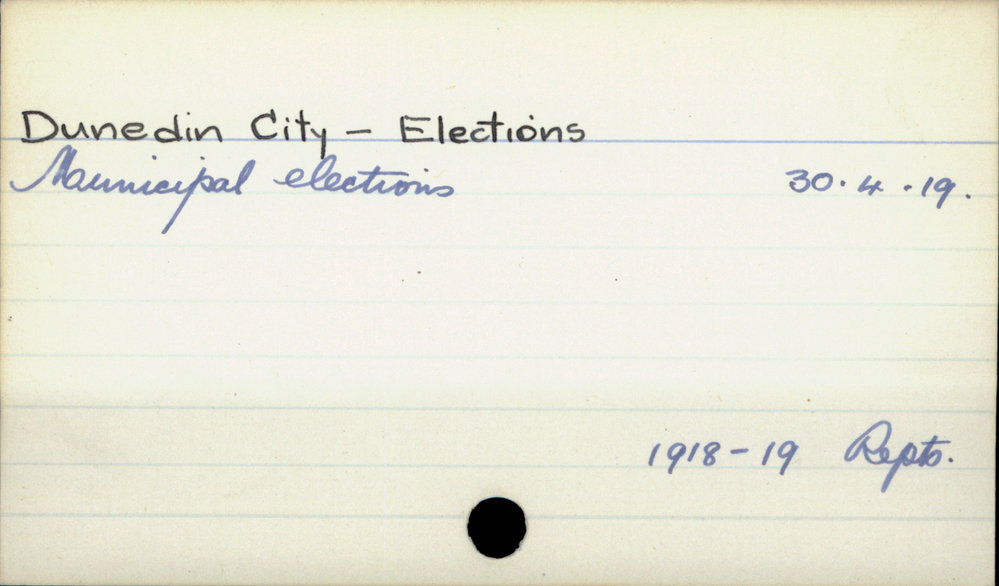 Dunedin City – Elections
Municipal elections 30.4.19.
1918–19 Repts.